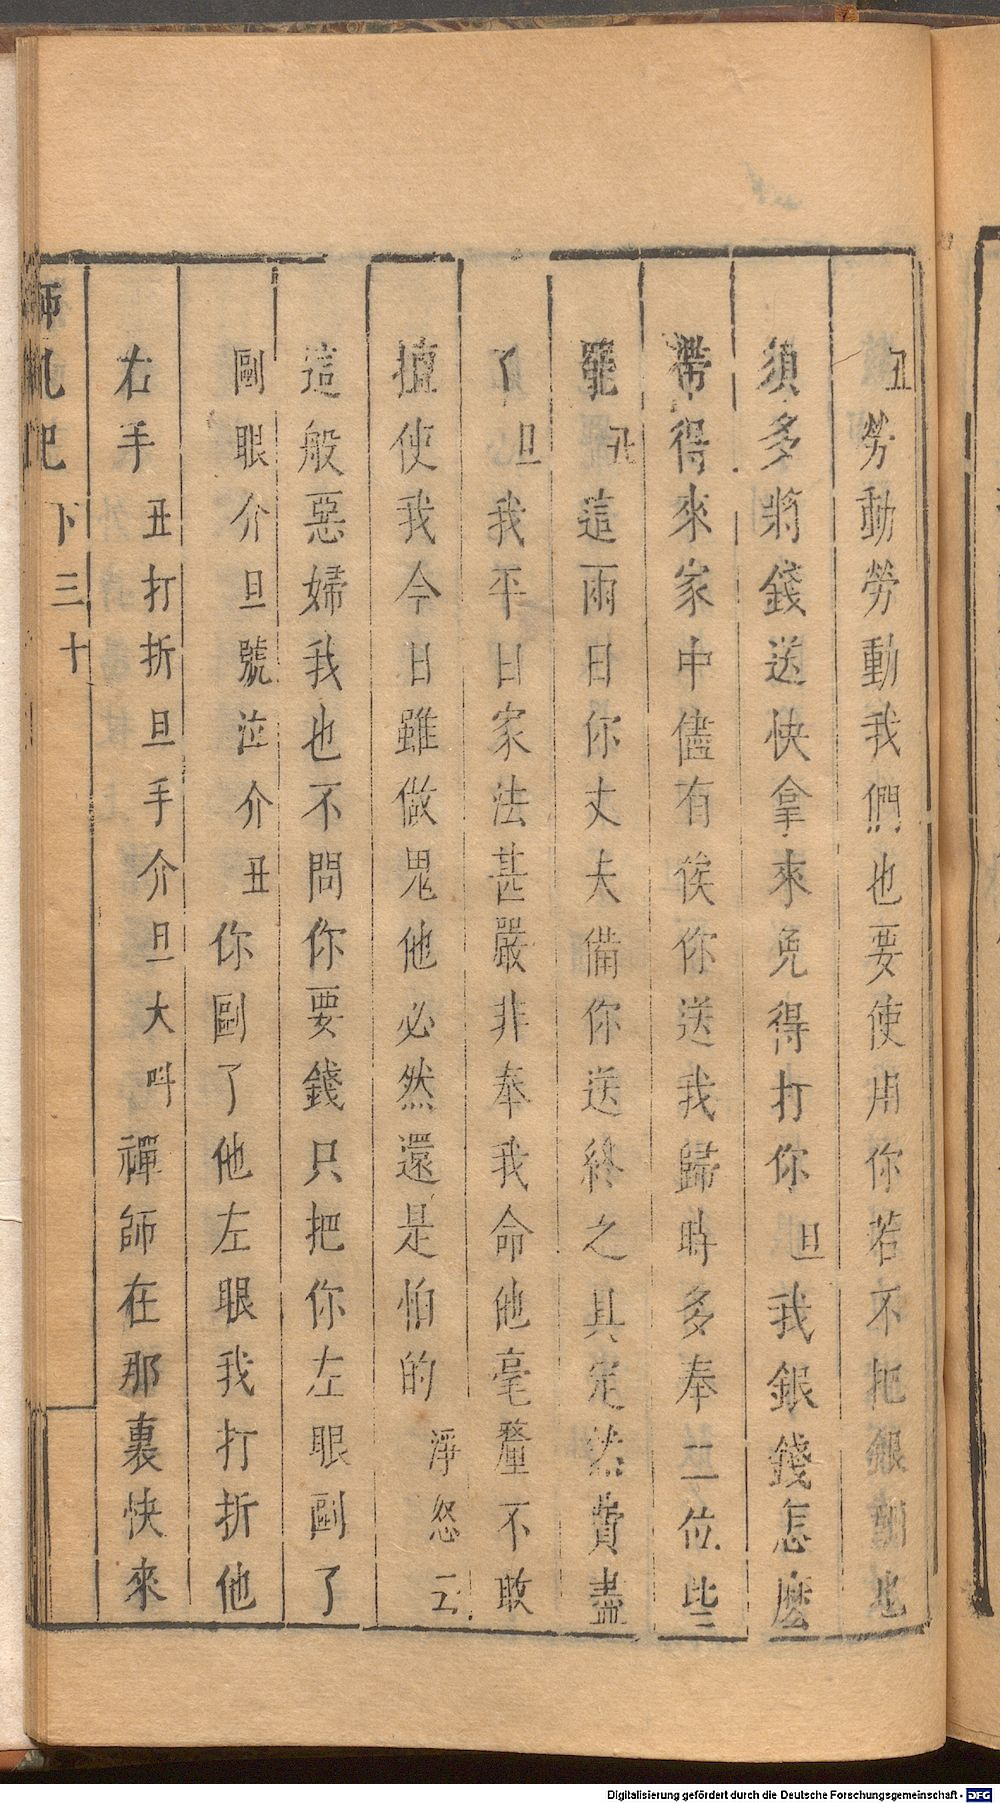 丑勞動勞動我們也要使用你若不把銀
須多將錢送快拿來免得打你旦我銀錢怎麽
帶得來家中儘有俟你送我歸時多奉二位些
罷丑這雨日你丈夫備你送終之具定然費盡
了旦我平日家法甚嚴非奉我命他毫釐不敢
擅使我今日雖做鬼他必然還是怕的淨怨工
這般惡婦我也不問你要錢只把你左眼剾了
剾眼介旦號泣介丑你剾了他左眼我打折他
右手丑打折旦手介旦大呌禪師在那裏快來
下三十
Digitalisierung gefördert durch die Deutsche Forschungsgemeinschaft - DFG